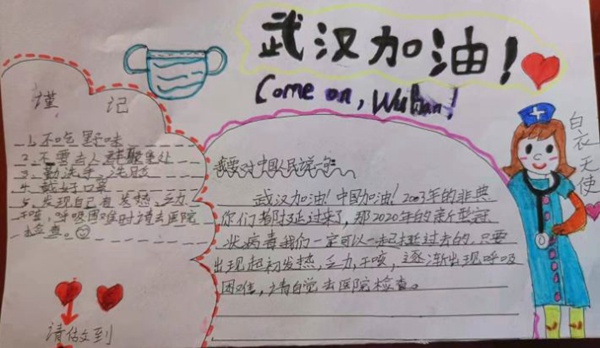 武汉加油！
Come on, Wuhan!
谨记
1、不吃野味
2、不要去人群聚集处
3、勤洗手、洗耳
4、戴好口罩
5、发现自己有发热，乏力
干咳，呼吸困难时请去医院
检查。
请做到
我要对中国人民说一句
武汉加油！中国加油！2003年的非典
你们都挺过来了，那2020年的新型冠
状病毒我们一定可以一起挺过去的，只要
出现起初发热，乏力，干咳，逐渐出现呼吸
困难，请自觉去医院检查。
白衣天使